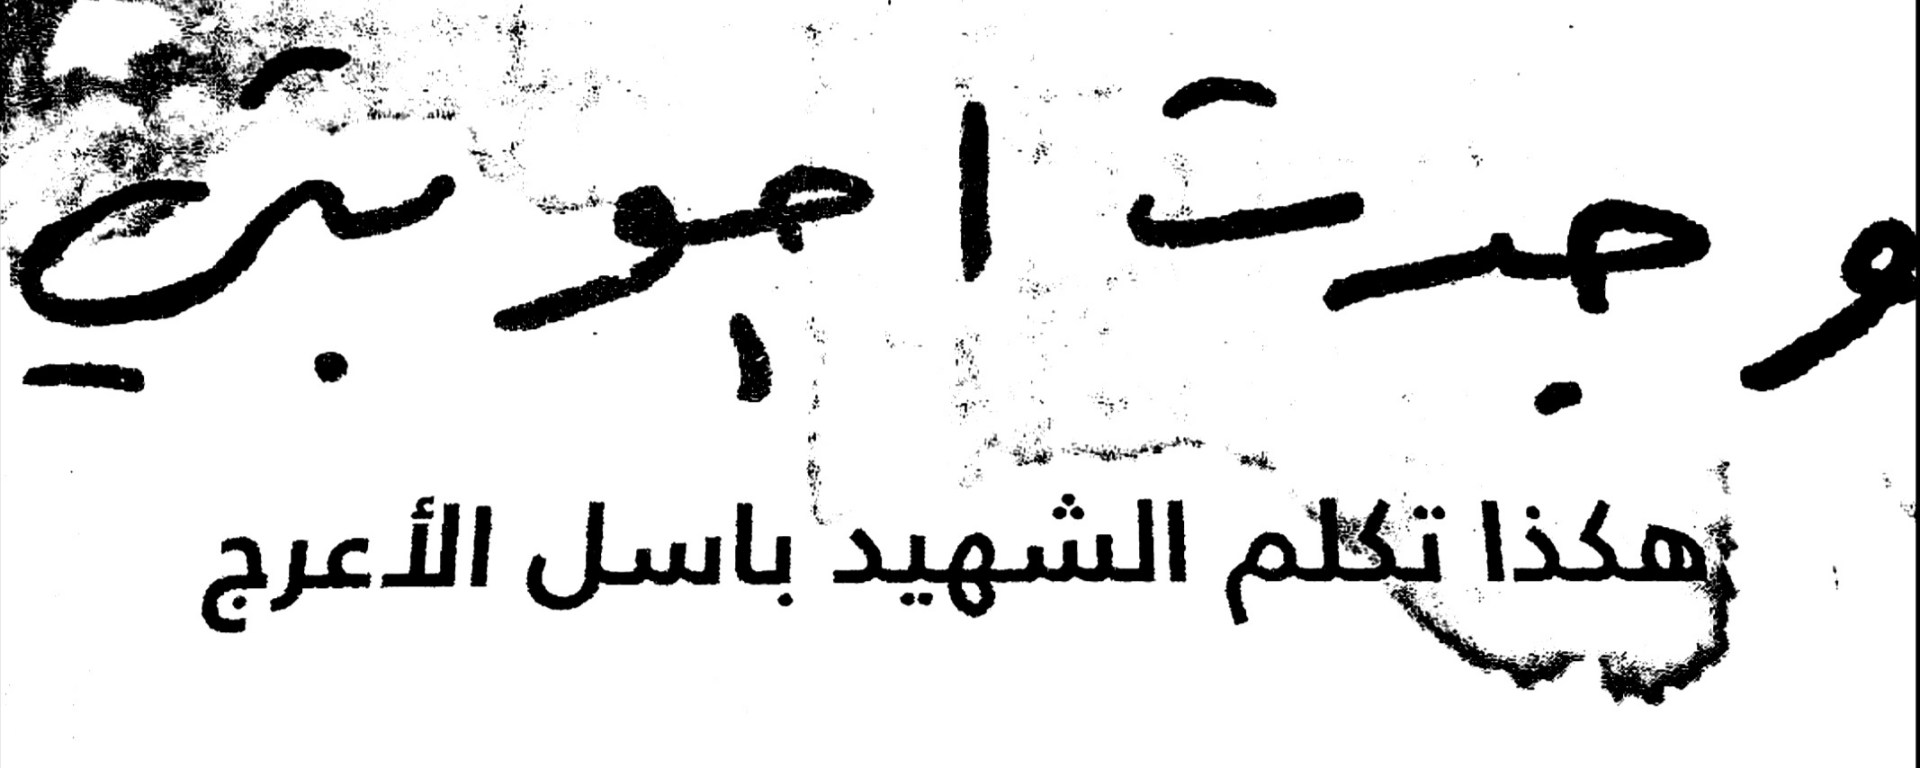 وجدت اجوبتي
هكذا تكلم الشهيد باسل الأعرج